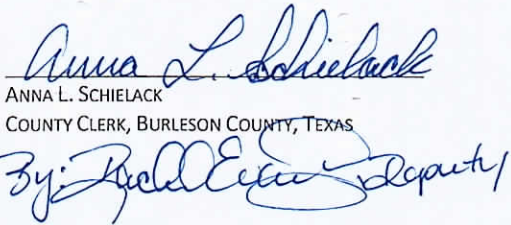 Anna L. Schielack
ANNA L. SCHIELACK
COUNTY CLERK, BURLESON COUNTY, TEXAS
By: Rachel Evans, deputy